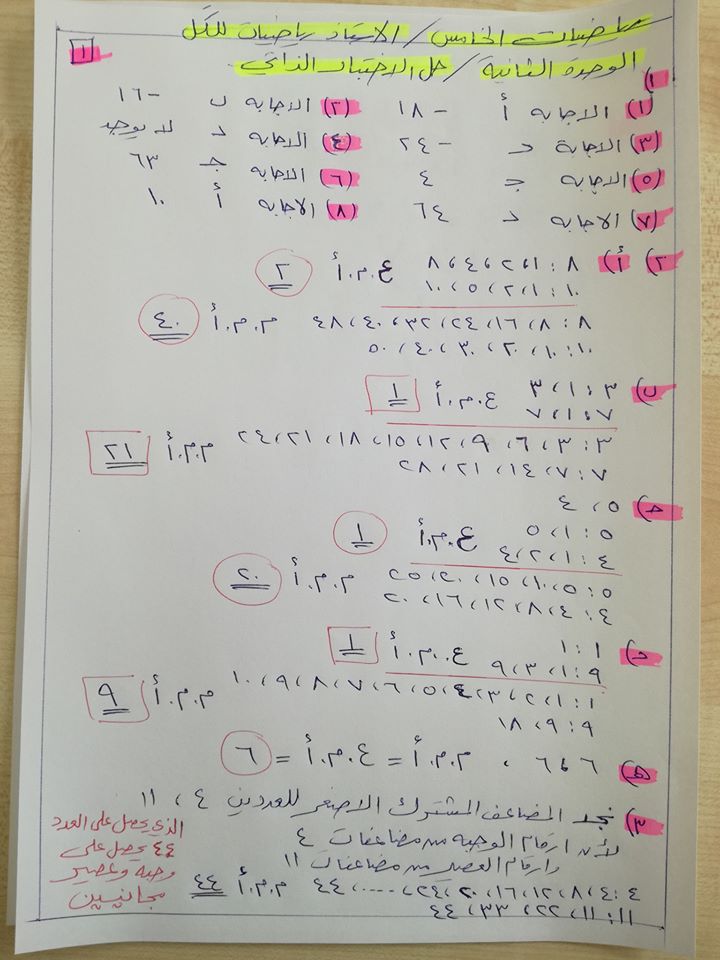 رياضيات الخامس / الاستاذ رياضيات للكل
الوحدة الثانية / حل الاختبار الذاتي
١
١
(١) الاجابه أ -١٨ (٢) الاجابه ب -١٦
(٣) الاجابة د -٢٤ (٤) الاجابه د لا يوجد
(٥) الاجابه ج ٤ (٦) الاجابه ج ٦٣
(٧) الاجابه د ٦٤ (٨) الاجابه أ ١٠
٢) أ) ٨ : ١، ٢، ٤، ٨ ع.م.أ ٢
١٠ : ١، ٢، ٥، ١٠
٨ : ٨، ١٦، ٢٤، ٣٢، ٤٠، ٤٨ م.م.أ ٤٠
١٠ : ١٠، ٢٠، ٣٠، ٤٠، ٥٠
ب) ٣ : ١، ٣ ع.م.أ ١
٧ : ١، ٧
٣ : ٣، ٦، ٩، ١٢، ١٥، ١٨، ٢١، ٢٤ م.م.أ ٢١
٧ : ٧، ١٤، ٢١، ٢٨
ج) ٥، ٤
٥ : ١، ٥ ع.م.أ ١
٤ : ١، ٢، ٤
٥ : ٥، ١٠، ١٥، ٢٠، ٢٥ م.م.أ ٢٠
٤ : ٤، ٨، ١٢، ١٦، ٢٠
د) ١ : ١ ع.م.أ ١
٩ : ١، ٣، ٩
١ : ١، ٢، ٣، ٤، ٥، ٦، ٧، ٨، ٩، ١٠ م.م.أ ٩
٩ : ٩، ١٨
هـ) ٦، ٦ ، م.م.أ = ع.م.أ = ٦
٣) نجد المضاعف المشترك الاصغر للعددين ٤ ، ١١
لأن ارقام الوجبه من مضاعفات ٤
وارقام العصير من مضاعفات ١١
٤ : ٤، ٨، ١٢، ١٦، ٢٠، ٢٤، ....، ٤٤ م.م.أ ٤٤
١١ : ١١، ٢٢، ٣٣، ٤٤
الذي يحصل على العدد
٤٤ يحصل على
وجبه وعصير
مجانيين